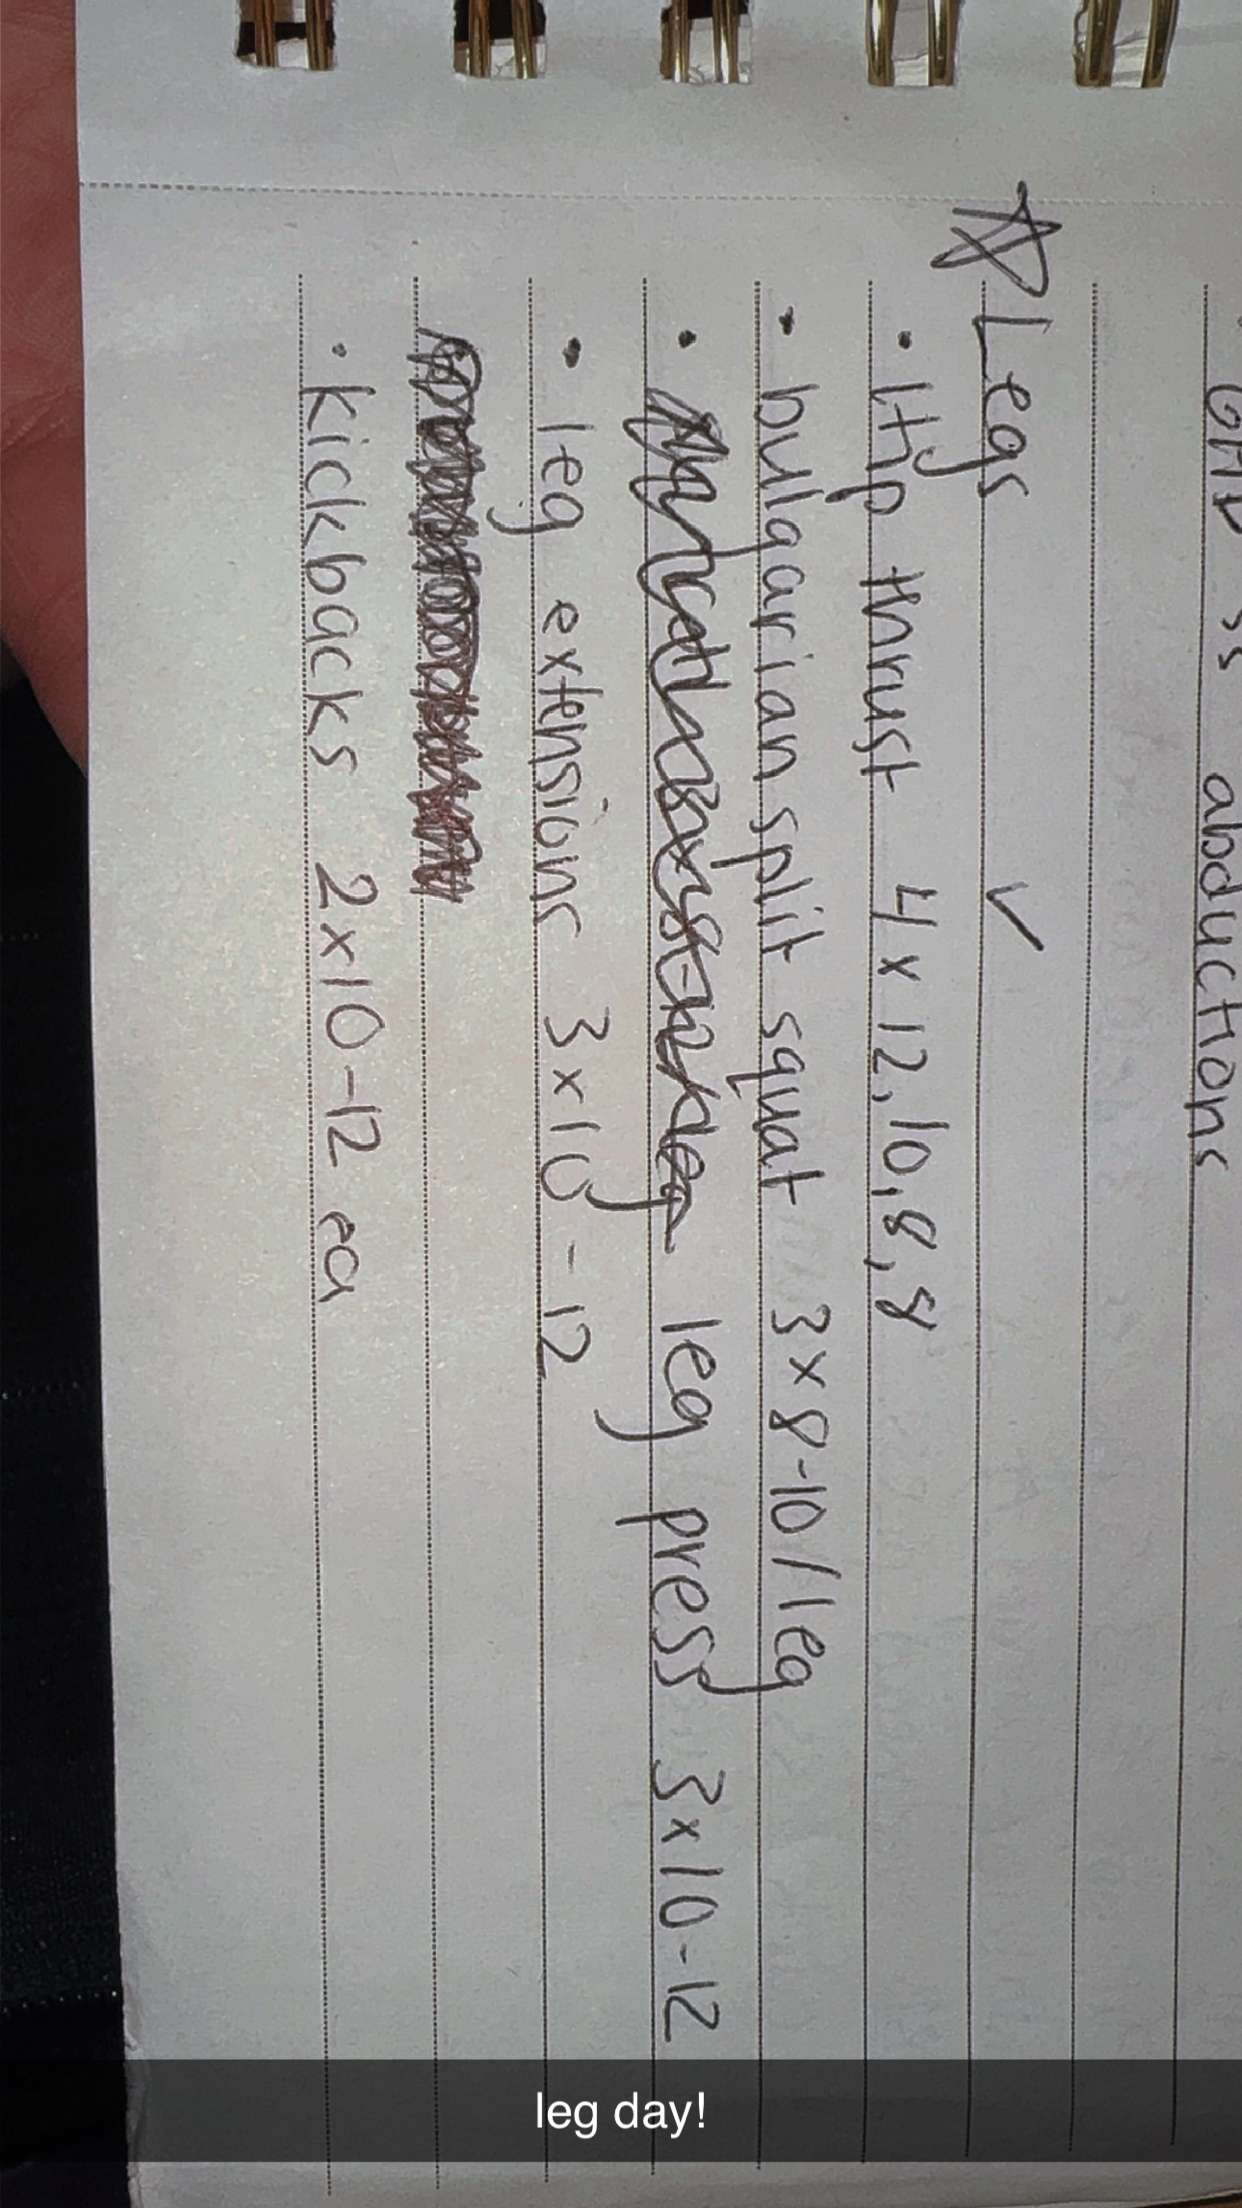 abductions
Legs ✓
• Hip thrust 4 x 12, 10, 8, 8
• bulgarian split squat 3 x 8-10 / leg
• leg press 3 x 10-12
• leg extensions 3 x 10-12
• kickbacks 2 x 10-12 ea
leg day!